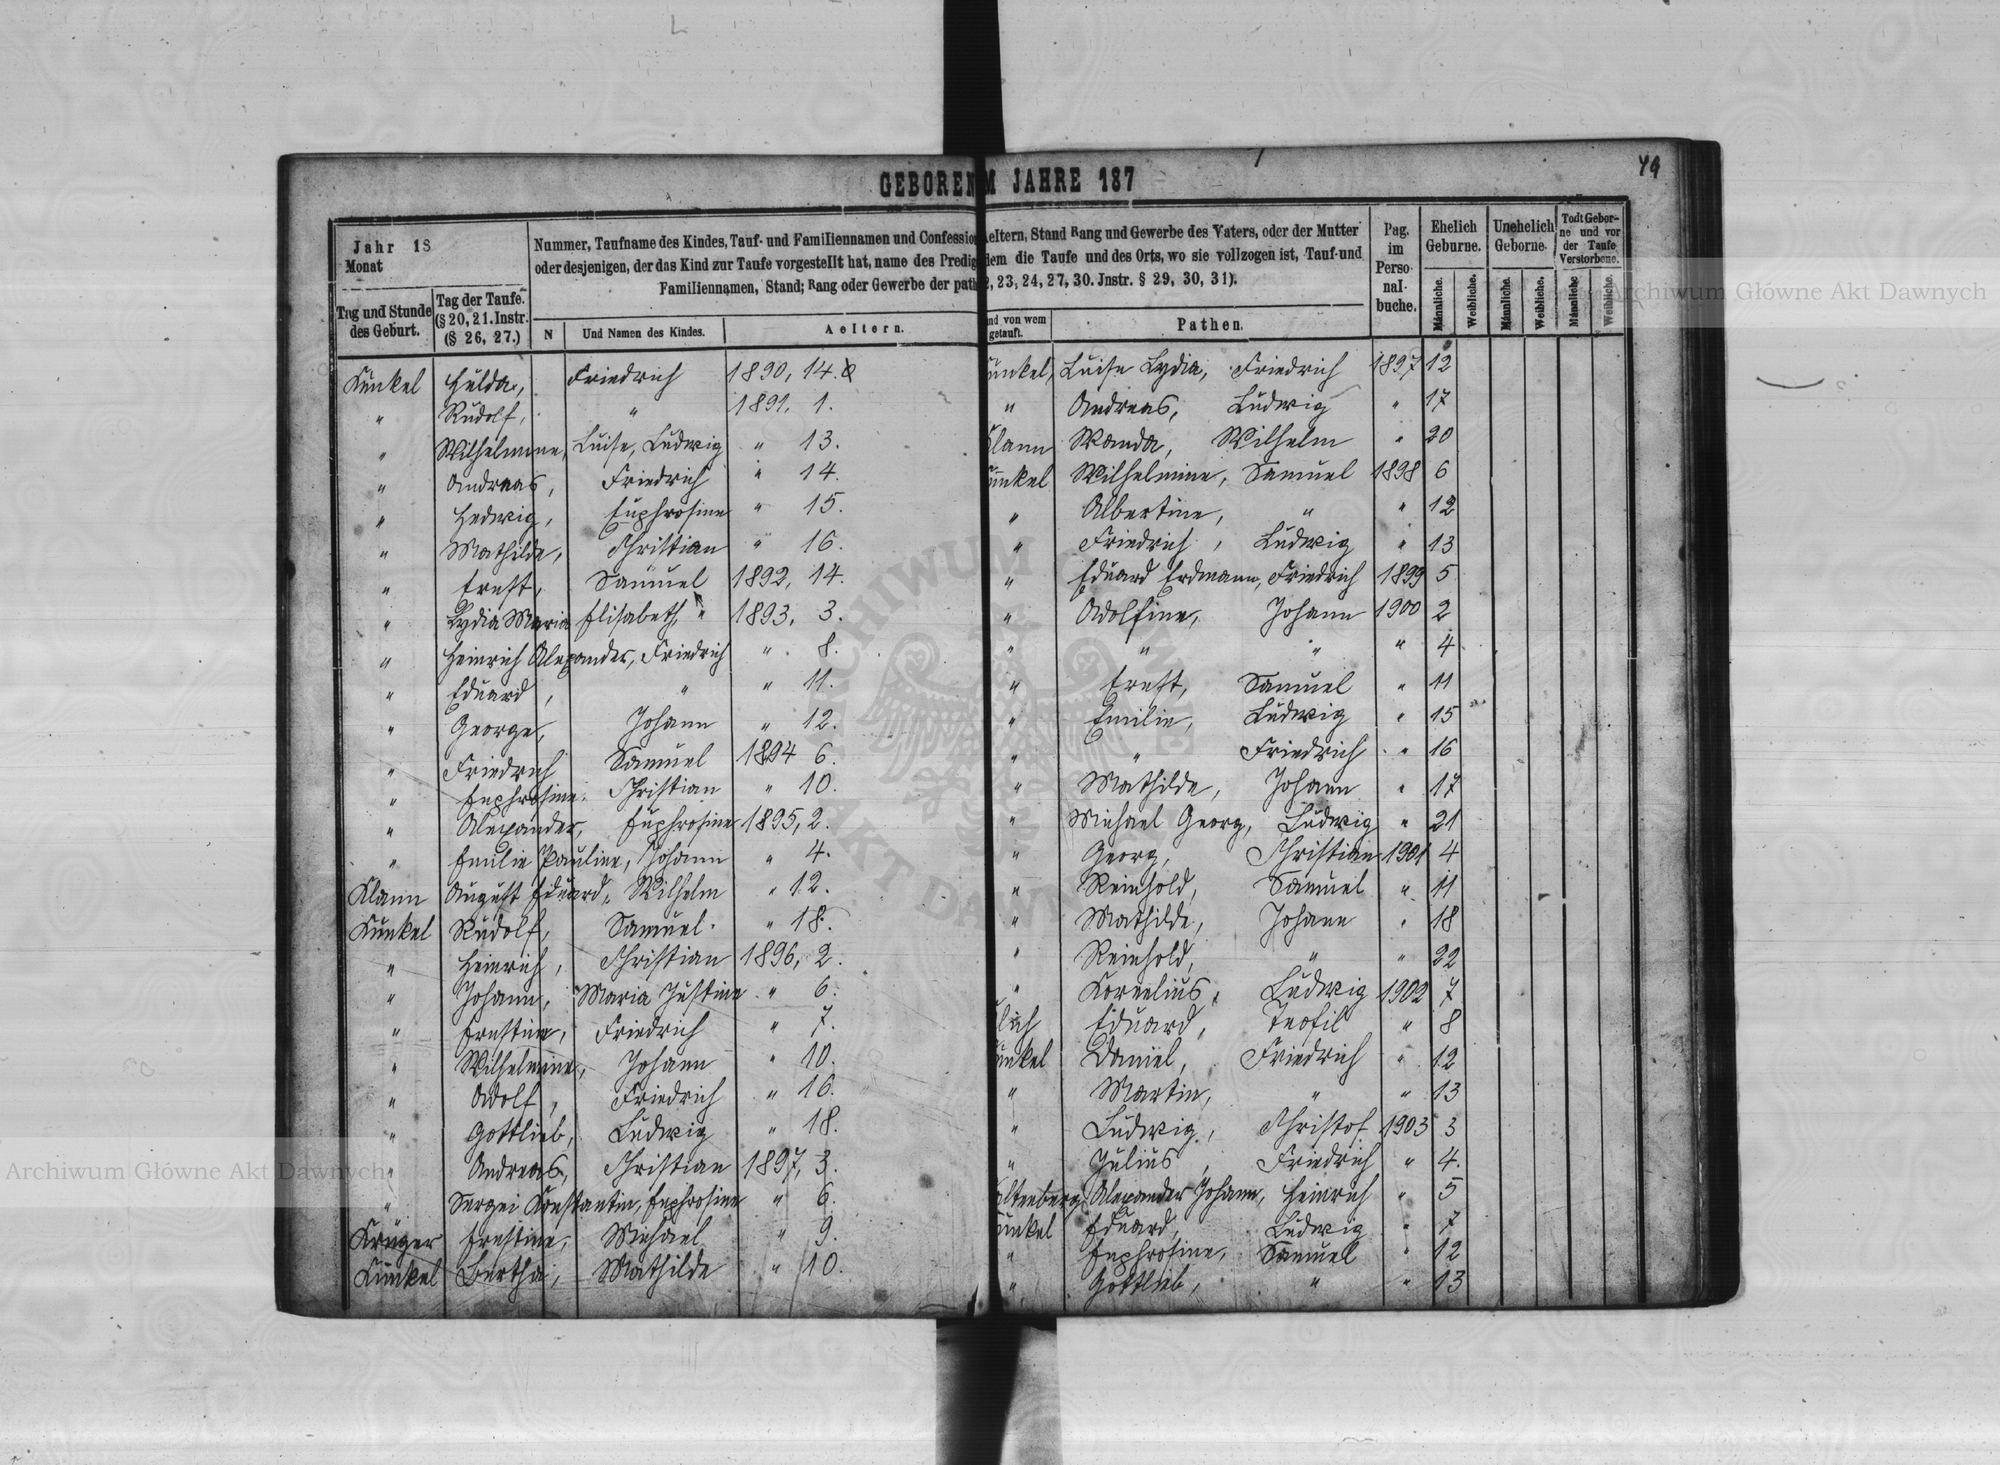 49
GEBOREN M JAHRE 187
Jahr 18
Monat
Tag und Stunde des Geburt.
Tag der Taufe. (§ 20, 21. Instr. (§ 26, 27.)
Nummer, Taufname des Kindes, Tauf- und Familiennamen und Confession
oder desjenigen, der das Kind zur Taufe vorgestellt hat, name des Predig
Familiennamen, Stand; Rang oder Gewerbe der path
N
Und Namen des Kindes.
Aeltern.
Aeltern, Stand Rang und Gewerbe des Vaters, oder der Mutter
dem die Taufe und des Orts, wo sie vollzogen ist, Tauf-und
2, 23, 24, 27, 30. Jnstr. § 29, 30, 31).
nd von wem getauft.
Pathen.
Pag. im Perso- nal- buche.
Ehelich Geburne.
Unehelich Geborne.
Todt Gebor- ne und vor der Taufe Verstorbene.
Männliche. Weibliche. Männliche. Weibliche. Männliche Weibliche.
Künkel Hulda, Friedrich 1890, 14.
" Rudolf, " 1891, 1.
" Wilhelmine, Luise, Ludwig " 13.
" Andreas, Friedrich " 14.
" Hedwig, Euphrosine " 15.
" Mathilde, Christian " 16.
" Ernst, Samuel 1892, 14.
" Lydia Maria Elisabeth, " 1893, 3.
" Heinrich Alexander, Friedrich " 8.
" Eduard, " " 11.
" George, Johann " 12.
" Friedrich Samuel 1894 6.
" Euphrosine. Christian " 10.
" Alexander, Euphrosine 1895, 2.
" Emilie Pauline, Johann " 4.
Klann August Eduard, Wilhelm " 12.
Künkel Rudolf, Samuel " 18.
" Heinrich, Christian 1896, 2.
" Johann, Maria Justine " 6.
" Ernstine, Friedrich " 7.
" Wilhelmine, Johann " 10.
" Adolf, Friedrich " 16.
" Gottlieb, Ludwig " 18.
" Andreas, Christian 1897, 3.
" Sergei Konstantin, Euphrosine " 6.
Krüger Ernstine, Michael " 9.
Künkel Bertha, Mathilde " 10.
ünkel, Luise Lydia, Friedrich 1897 12
" Andreas, Ludwig " 17
lann Wanda, Wilhelm " 20
ünkel Wilhelmine, Samuel 1898 6
" Albertine, " " 12
" Friedrich, Ludwig " 13
" Eduard Erdmann, Friedrich 1899 5
" Adolfine, Johann 1900 2
" " " " 4
" Ernst, Samuel " 11
" Emilie, Ludwig " 15
" " Friedrich " 16
" Mathilde, Johann " 17
" Michael Georg, Ludwig " 21
" Georg, Christian 1901 4
" Reinhold, Samuel " 11
" Mathilde, Johann " 18
" Reinhold, " " 22
" Kornelius, Ludwig 1902 7
Eduard, Teofil " 8
ünkel Daniel, Friedrich " 12
" Martin, " " 13
" Ludwig, Christof 1903 3
" Julius, Friedrich " 4.
altenberg Alexander Johann, Heinrich " 5
ünkel Eduard, Ludwig " 7
" Euphrosine, Samuel " 12
" Gottlieb, " " 13
Archiwum Główne Akt Dawnych
Archiwum Główne Akt Dawnych